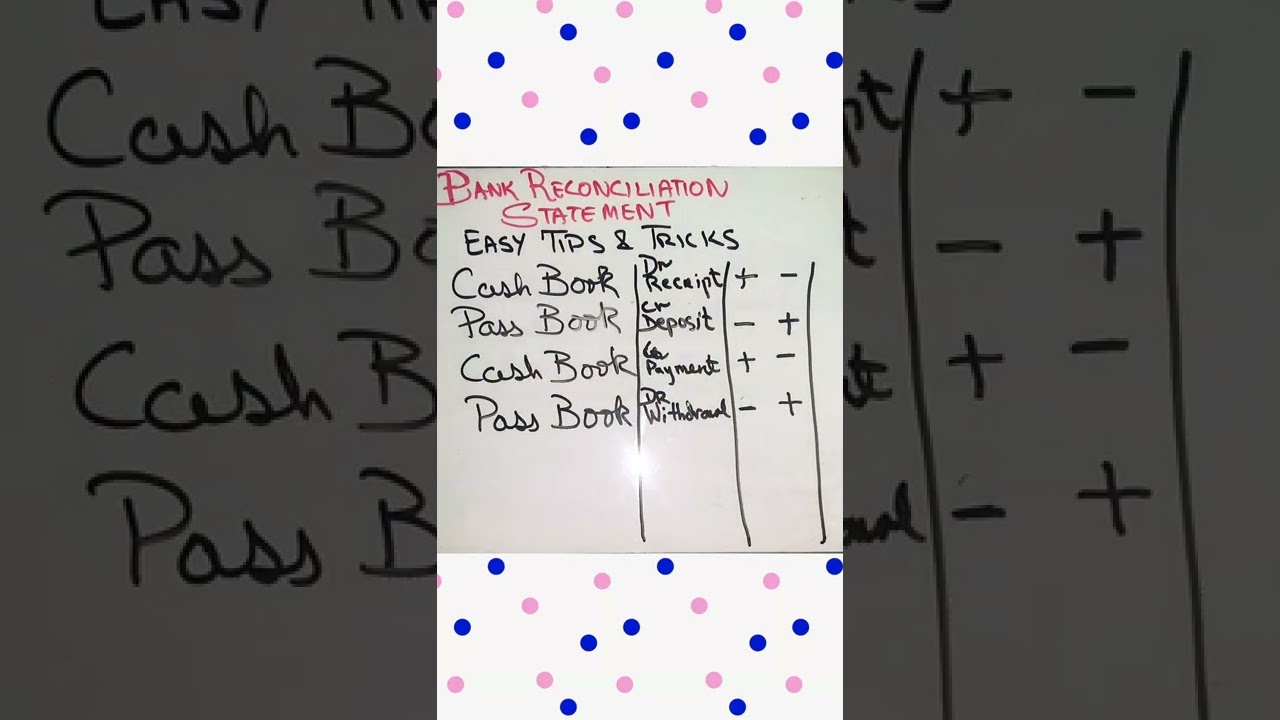 BANK RECONCILIATION
STATEMENT
EASY TIPS & TRICKS
Cash Book Dr Receipt + -
Pass Book Cr Deposit - +
Cash Book Payment + -
Pass Book DR Withdrawal - +